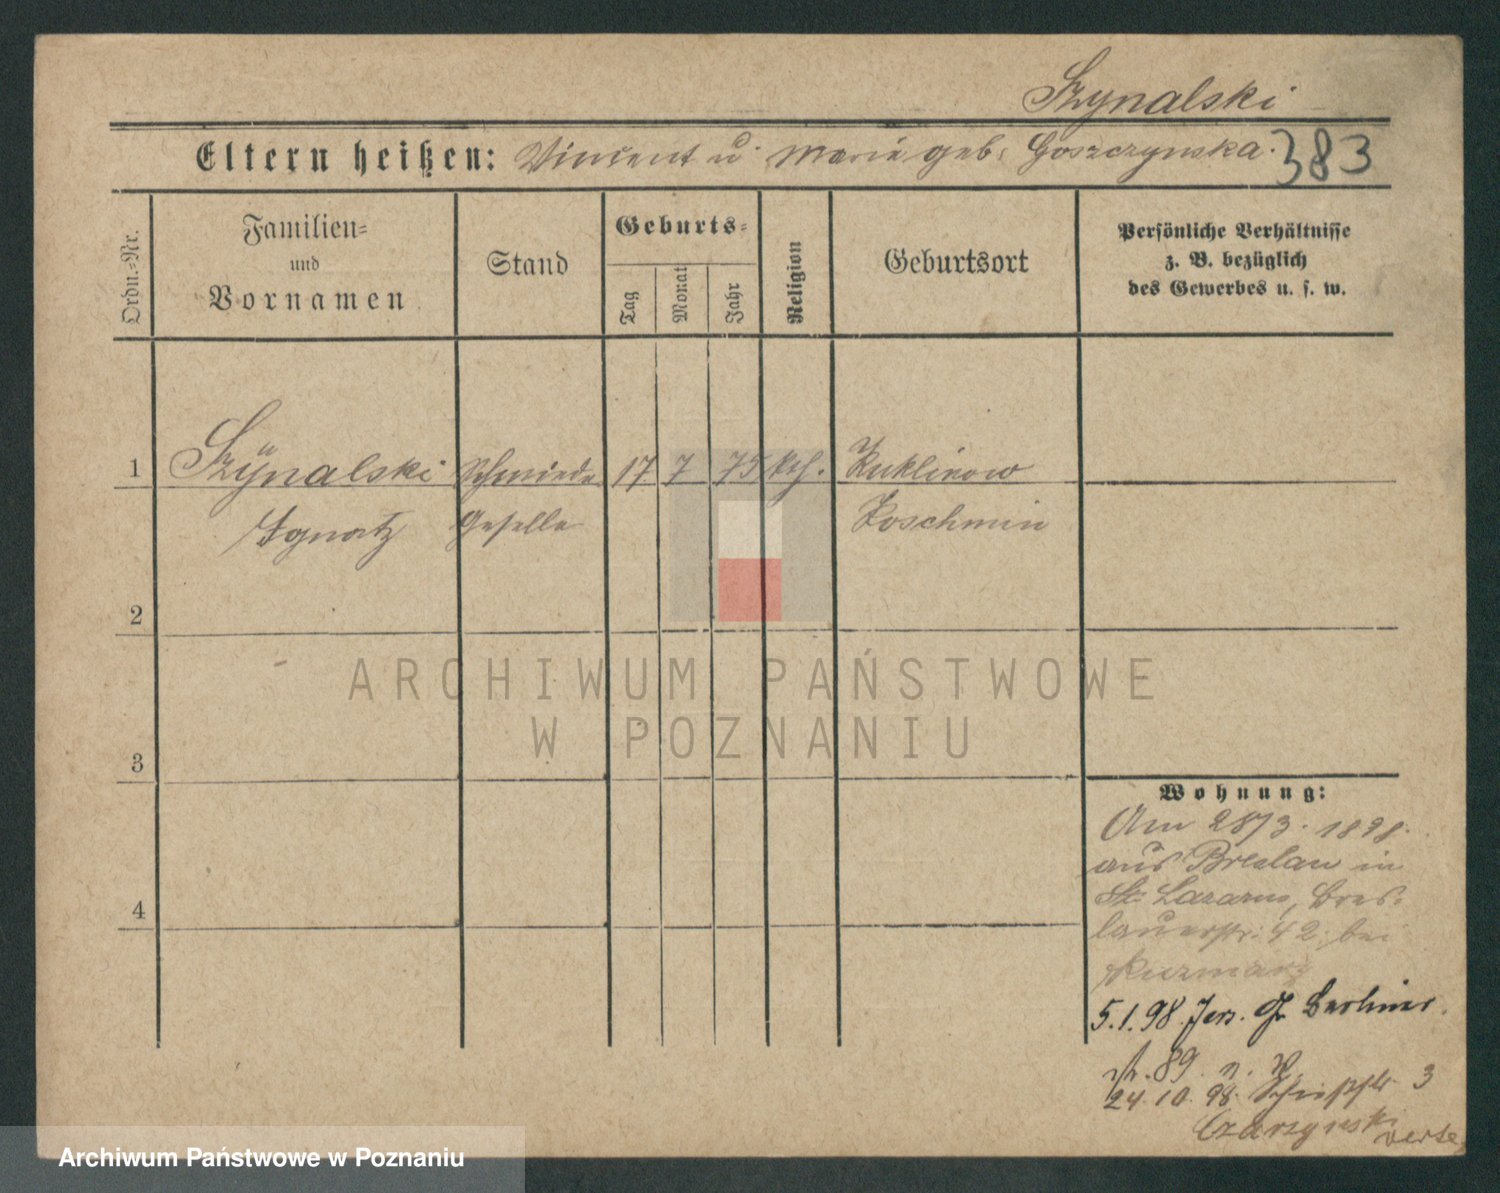 Szynalski
Eltern heißen: Vincent u. Marie geb. Goszczynska.
383
Ordn.=Nr.
Familien=
und
Vornamen
Stand
Geburts=
Tag
Monat
Jahr
Religion
Geburtsort
Persönliche Verhältnisse
z. B. bezüglich
des Gewerbes u. s. w.
1 Szÿnalski Schmiede 17 7 75 kth. Kuklinow
Ignatz Geselle Koschmin
2
3
4
Wohnung:
Am 28/3. 1898.
aus Breslau in
St. Lazarus, Bres-
lauerstr. 42 bei
5.1.98 Jers. Gr Berliner.
str. 89 n. W
24.10.98. 3
verte
ARCHIWUM PAŃSTWOWE
W POZNANIU
Archiwum Państwowe w Poznaniu